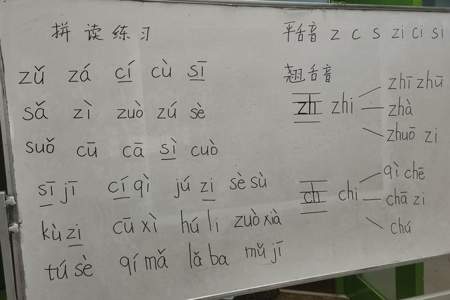 拼读练习
zǔ zá cí cù sī
sǎ zì zuò zú sè
suǒ cū cā sì cuò
sī jī cí qì jú zi sè sù
kù zi cū xì hú li zuò xià
tú sè qí mǎ lǎ ba mǔ jī
平舌音 z c s zi ci si
翘舌音
zh zhi zhī zhū
zhà
zhuō zi
ch chi qì chē
chā zi
chú